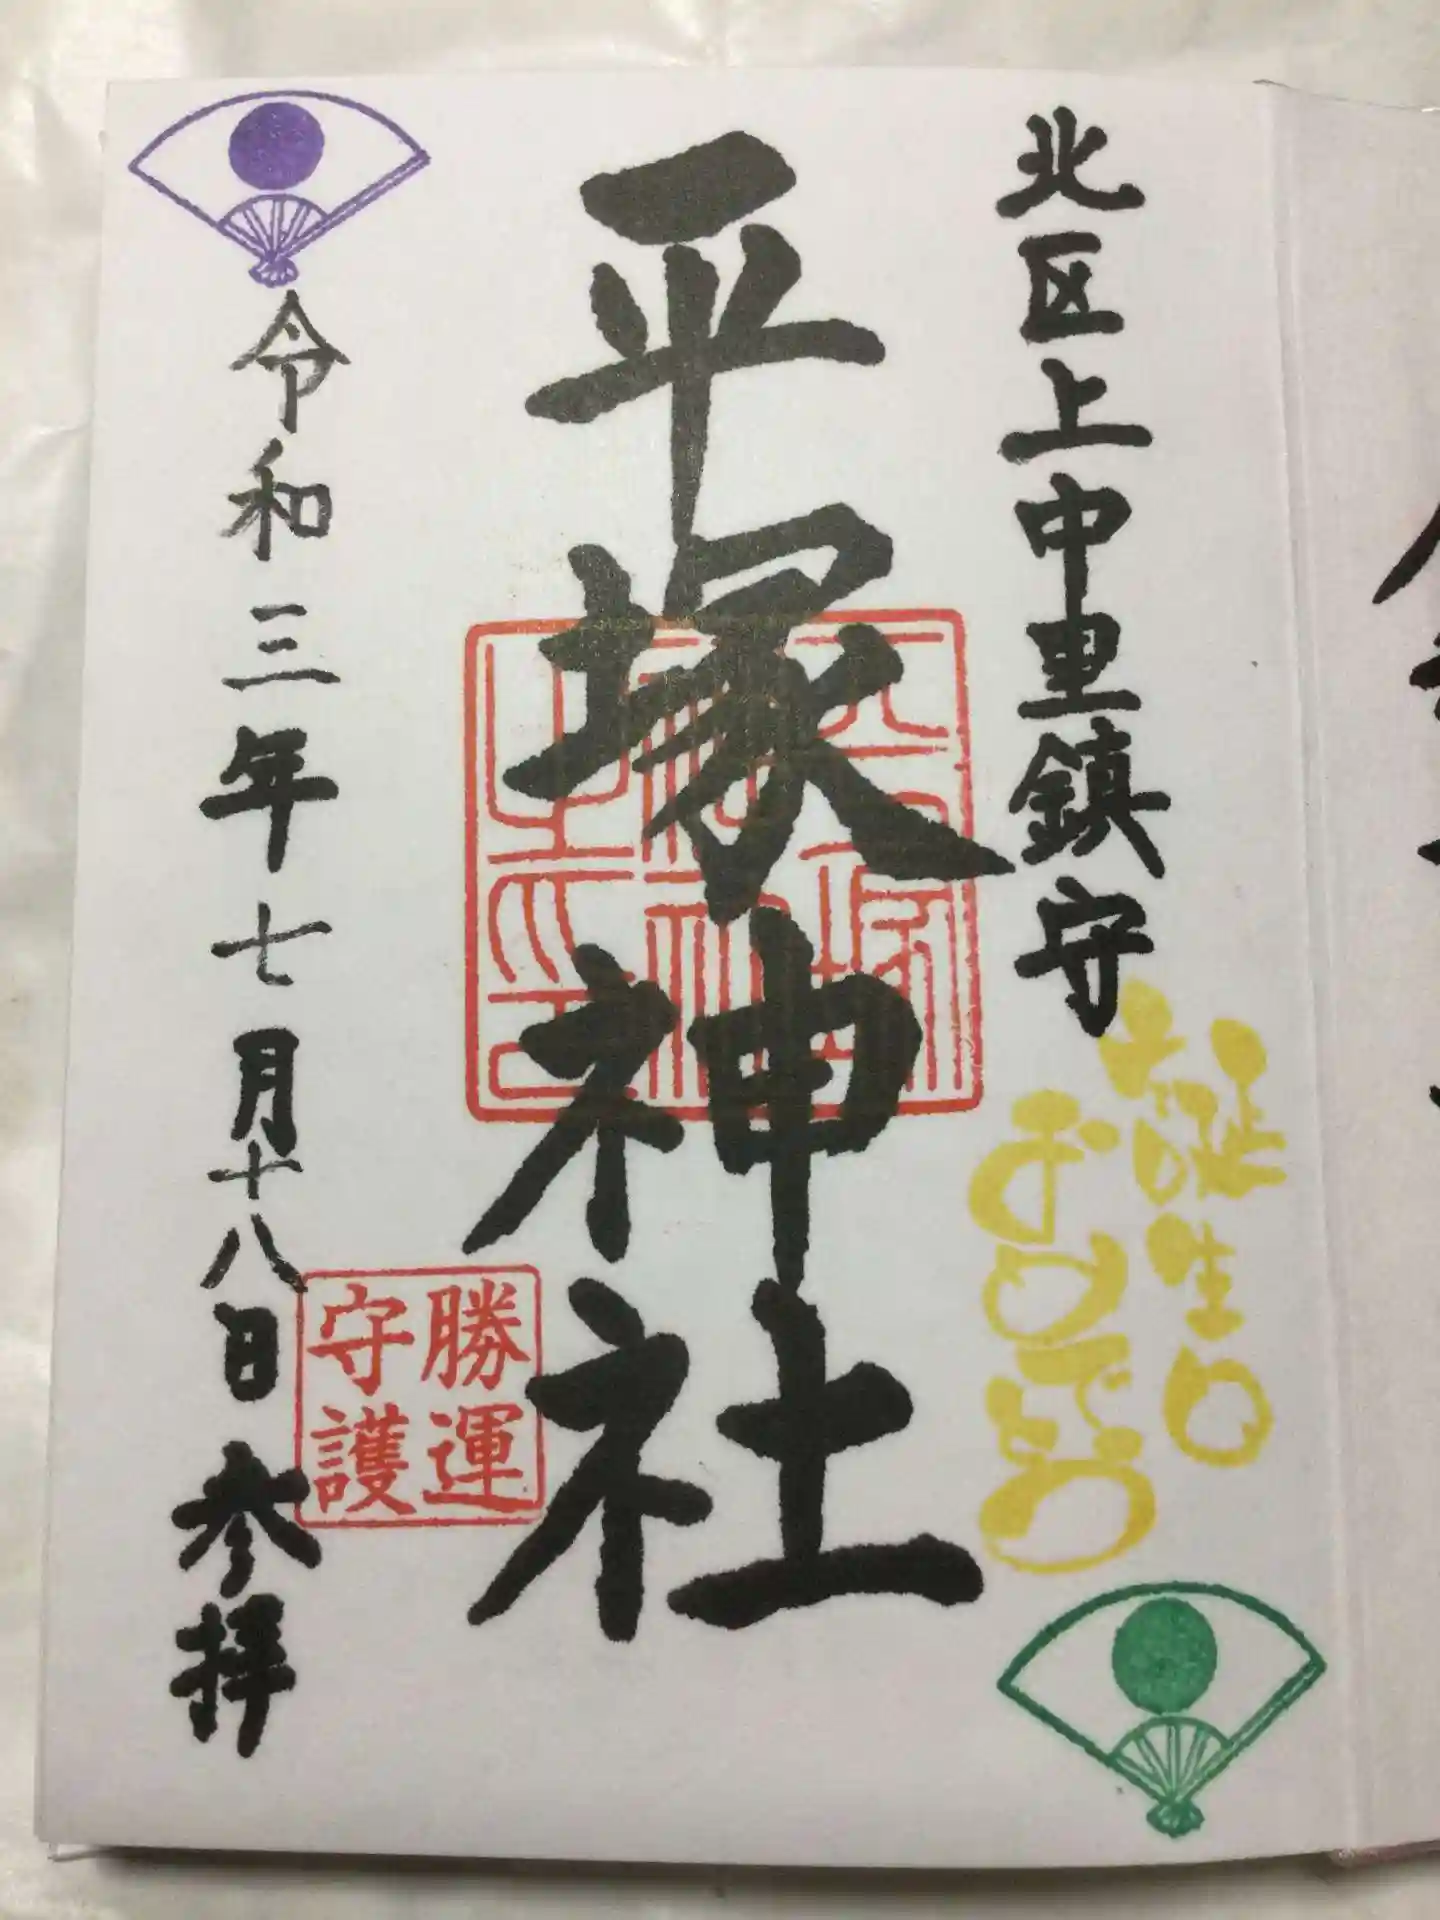 北区上中里鎮守
お誕生日
おめでとう
平塚神社
平塚神社之印
勝運
守護
令和三年七月十八日参拝